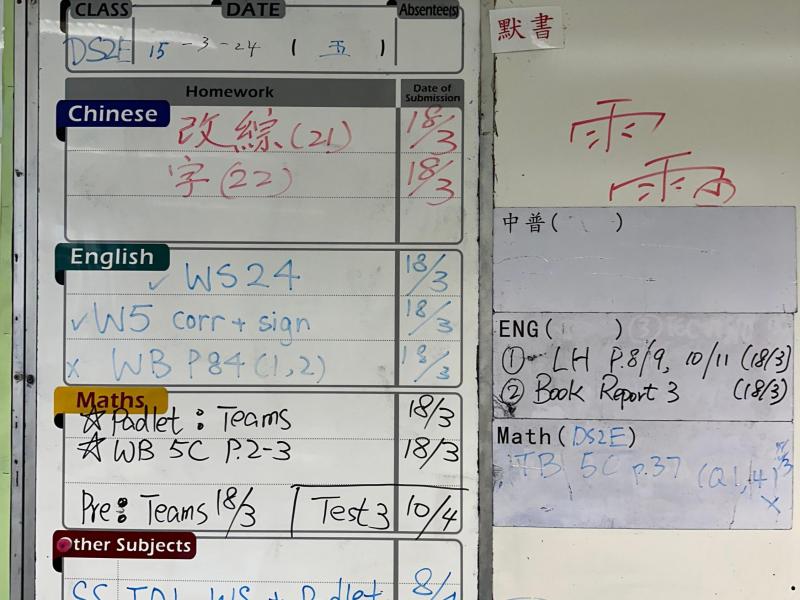 CLASS DATE Absentee(s)
DS2E 15-3-24 ( 五 )
Homework Date of Submission
Chinese
改綜(21) 18/3
字(22) 18/3
English
✓ WS24 18/3
✓ W5 corr + sign 18/3
x WB P84(1,2) 18/3
Maths
☆ Padlet : Teams 18/3
☆ WB 5C P.2-3 18/3
Pre: Teams 18/3 Test 3 10/4
Other Subjects
WS + Padlet 8/
默書
雨
中普( )
ENG( )
① LH P.8/9, 10/11 (18/3)
② Book Report 3 (18/3)
Math(DS2E)
TB 5C P.37 (Q1,4)
x